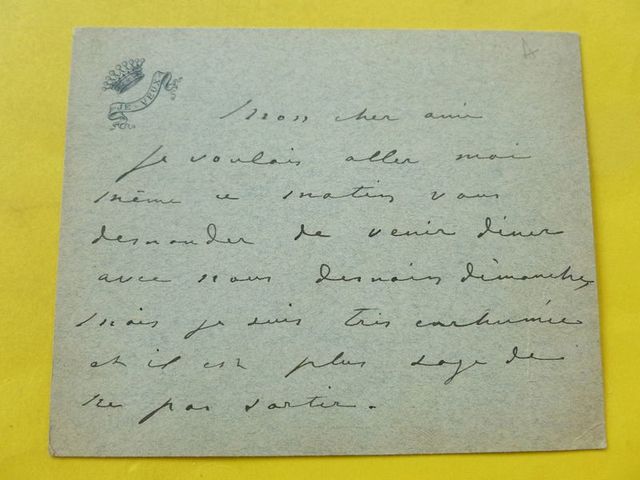 A
JE VEUX
Mon cher ami
Je voulais aller moi
même ce matin vous
demander de venir diner
avec nous demain dimanche,
Mais je suis très enrhumée
et il est plus sage de
ne pas sortir.